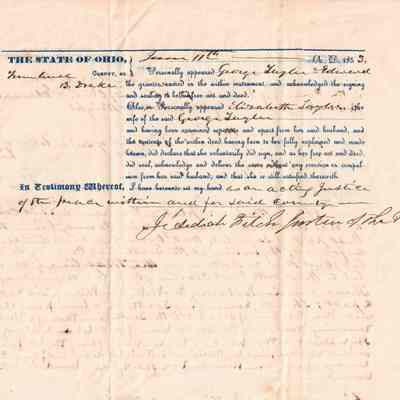 THE STATE OF OHIO, June 11th A. D. 1853.
Trumbull County, ss. Personally appeared George Taylor & Edward
B. Drake the grantor, named in the within instrument, and acknowledged the signing
and sealing to be their free act and deed.
Also, Personally appeared Elizabeth Taylor the
wife of the said George Taylor
and having been examined separate and apart from her said husband, and
the contents of the within deed having been to her fully explained and made
known, did declare that she voluntarily did sign, and as her free act and deed,
did seal, acknowledge and deliver the same without any coercion or compul-
sion from her said husband, and that she is still satisfied therewith
In Testimony Whereof, I have hereunto set my hand as an acting Justice
of the peace within and for said County
Jedediah Fitch Justice of the P